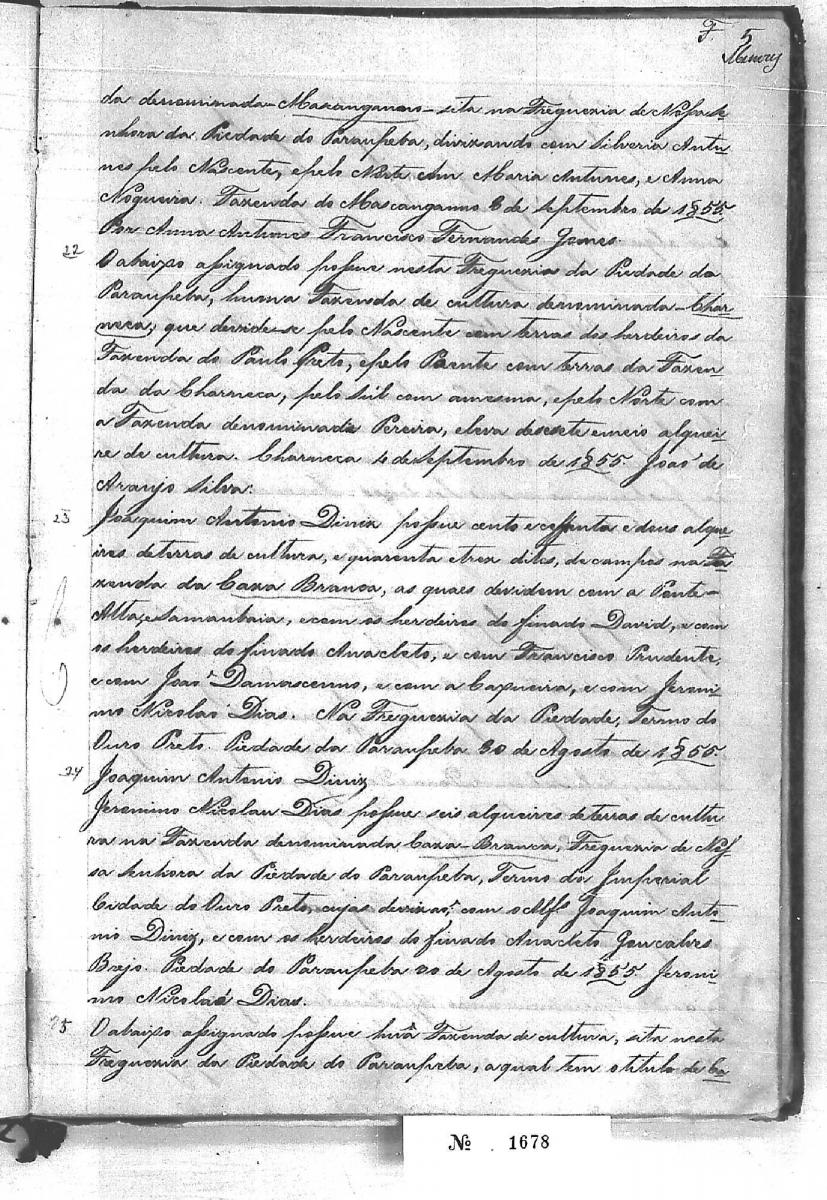 F. 5
da denominada - Mascanganno - sita na Freguezia de Nossa Se-
nhora da Piedade do Paraupeba, divizando com Silveria Antu-
nes pelo Nascente, e pelo Norte com Maria Antunes, e Anna
Nogueira. Fazenda do Mascanganno 8 de Septembro de 1855.
Por Anna Antunes Francisco Fernandes Gomes.
22 O abaixo assignado possue nesta Freguezia da Piedade da
Paraupeba, huma Fazenda de cultura denominada - Char-
neca, que devide-se pelo Nascente com terras dos herdeiros da
Fazenda do Paulo Preto, e pelo Poente com terras da Fazen-
da da Charneca, pelo Sul com amesma, e pelo Norte com
a Fazenda denominada Pereira, eleva desesete e meio alquei-
re de cultura. Charneca 4 de Septembro de 1855. João de
Araujo Silva.
23 Joaquim Antonio Diniz possue cento e essenta e dous alque-
ires de terras de cultura, e quarenta e trez ditos, de campos na Fa
zenda da Caza Branca, as quaes devidem com a Ponte-
Alta, e Samanbaia, e com os herdeiros do finado David, e com
os herdeiros do finado Anacleto, e com Francisco Prudente,
e com João Damascenno, e com a Capueira, e com Jeroni-
mo Nicoláo Dias. Na Freguezia da Piedade, Termo do
Ouro Preto. Piedade da Paraupeba 30 de Agosto de 1855.
24 Joaquim Antonio Diniz
Jeronimo Nicolau Dias possue seis alqueires de terras de cultu-
ra na Fazenda denominada Caza-Branca, Freguezia de Nos-
sa Senhora da Piedade do Paraupeba, Termo da Imperial
Cidade do Ouro Preto, cujas devizas, com o Alfs Joaquim Anto-
nio Diniz, e com os herdeiros do finado Anacleto Goncalves
Brejo. Piedade do Paraupeba 30 de Agosto de 1855. Jeroni-
mo Nicoláo Dias.
25 O abaixo assignado possue huã Fazenda de cultura, sita nesta
Freguezia da Piedade do Paraupeba, a qual tem o titulo de Ca
Nº 1678